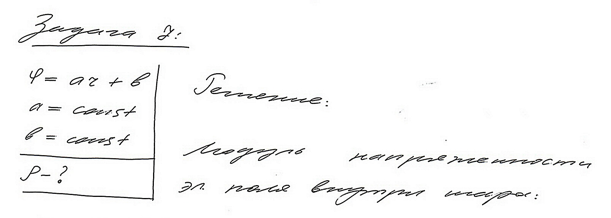 Задача 7:
φ = ar + b
a = const
b = const
ρ - ?
Решение:
Модуль напряженности
эл. поля внутри шара: